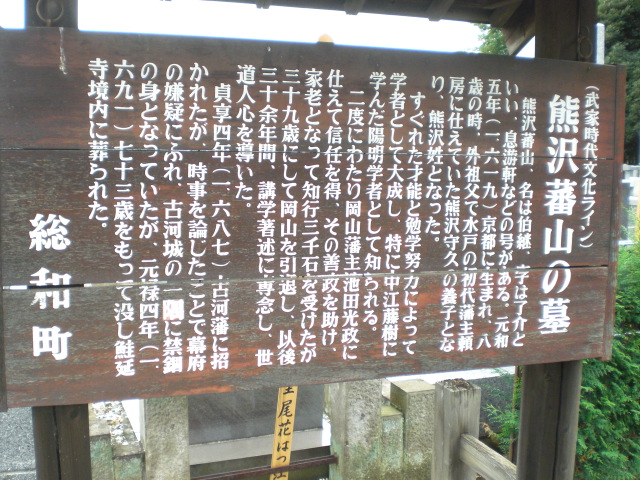 (武家時代文化ライン)
熊沢蕃山の墓
熊沢蕃山、名は伯継、字は了介と
いい、息游軒などの号がある。元和
五年(一六一九)京都に生まれ、八
歳の時、外祖父で水戸の初代藩主頼
房に仕えていた熊沢守久の養子とな
り、熊沢姓となった。
すぐれた才能と勉学努力によって
学者として大成し、特に中江藤樹に
学んだ陽明学者として知られる。
二度にわたり岡山藩主池田光政に
仕えて信任を得、その善政を助け、
家老となって知行三千石を受けたが
三十九歳にして岡山を引退し、以後
三十余年間、講学著述に専念し、世
道人心を導いた。
貞享四年(一六八七)古河藩に招
かれたが、時事を論じたことで幕府
の嫌疑にふれ、古河城の一隅に禁錮
の身となっていたが、元禄四年(一
六九一)七十三歳をもって没し鮭延
寺境内に葬られた。
総和町
尾花はつ